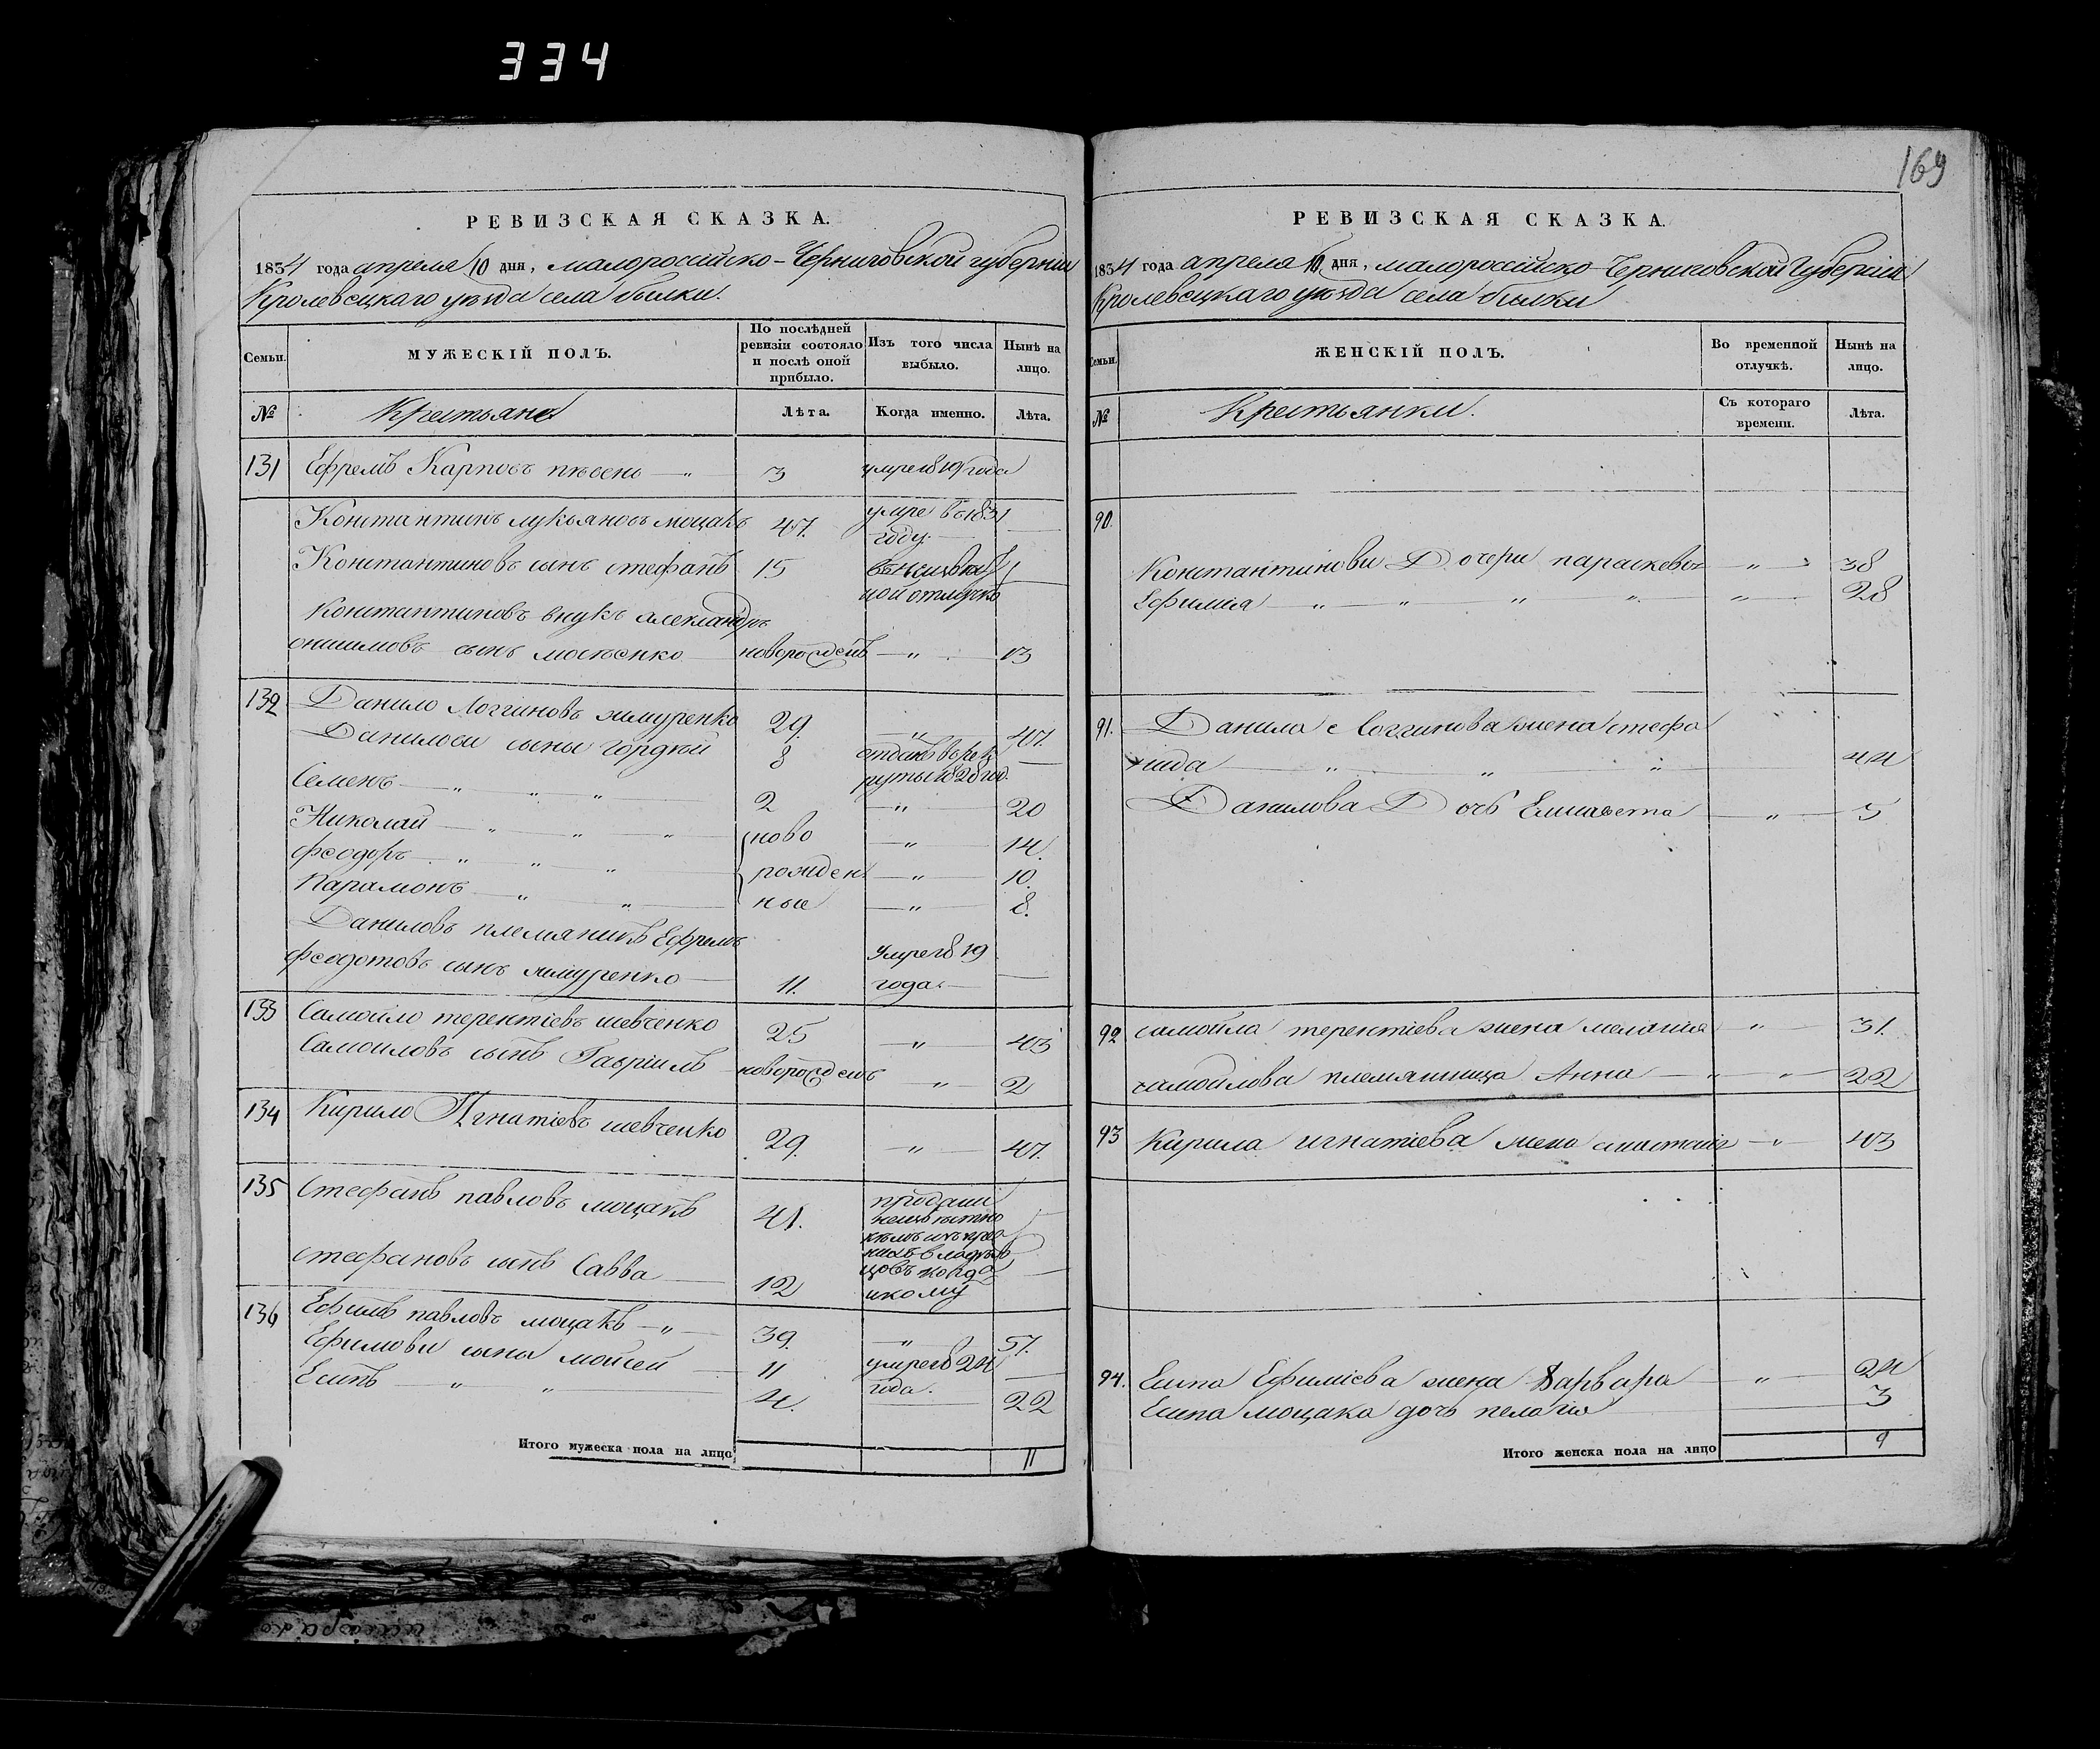 334
РЕВИЗСКАЯ СКАЗКА.
1834 года апреля 10 дня, малоросийско-Черниговской губернии
Кролевецкаго уезда села билки.
Семьи.
МУЖЕСКІЙ ПОЛЪ.
По послѣдней ревизіи состояло и послѣ оной прибыло.
Изъ того числа выбыло.
Нынѣ на лицо.
№ Крестьяне Лѣта. Когда именно. Лѣта.
131 Ефремъ Карповъ 3 умре 819 года
Константинъ лукьяновъ моцакъ 47. умре въ 1831
году.
Константиновъ сынъ стефанъ 15
отлучке
Константиновъ внукъ александръ
онисимовъ сынъ новорожденъ — " 13
132 Данило Логгиновъ жмуренко 29. " 47.
Даниловы сыны гордѣй 8 отданъ въ рек
руты 1828 год.
Семенъ — " " " 2 — " 20
Николай — " " " ново — " 14.
феодоръ — " " " рожден — " 10.
Парамонъ — " " ные — " 8.
Даниловъ племяникъ Ефремъ
феодотовъ сынъ жмуренко — 11. умре 819
года. —
133 Самойло терентіевъ шевченко 25 — " 43
Самойловъ сынъ Гавріилъ новорожденъ " 2
134 Кирило Игнатіевъ шевченко 29. — " 47.
135 Стефанъ павловъ моцакъ 41.
стефановъ сынъ Савва — 12
136 Ефимъ павловъ моцакъ — " — 39. — " 57.
Ефимови сыны мойсей — 11 умре 824
Есипъ — " " 4. года. 22
Итого мужеска пола на лицо 11
169
РЕВИЗСКАЯ СКАЗКА.
1834 года апреля 10 дня, малоросийско Черниговской Губерніи
Кролевецкаго уезда села билки
Семьи.
ЖЕНСКІЙ ПОЛЪ.
Во временной отлучкѣ.
Нынѣ на лицо.
№ Крестьянки. Съ котораго времени. Лѣта.
90.
Константинови Дочери параскевья — " 38
Ефимия — " " " " — " — 28
91. Данила Логгинова жена стефа
нида — " " " 44
Данилова Дочь Елисавета — " — 3
92 самойла терентіева жена меланія — " — 31.
самойлова племянница Анна — " — " — 22
93 Кирила игнатіева жена анастасія — " — 43
94. Есипа Ефиміева жена Варвара — " — 24
Есипа моцака дочь пелагія 3
Итого женска пола на лицо 9